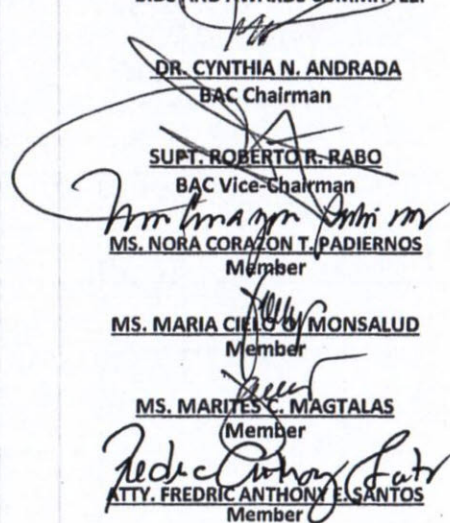 BIDS AND AWARDS COMMITTEE
DR. CYNTHIA N. ANDRADA
BAC Chairman
SUPT. ROBERTO R. RABO
BAC Vice-Chairman
MS. NORA CORAZON T. PADIERNOS
Member
MS. MARIA CIELO O. MONSALUD
Member
MS. MARITES C. MAGTALAS
Member
ATTY. FREDRIC ANTHONY E. SANTOS
Member